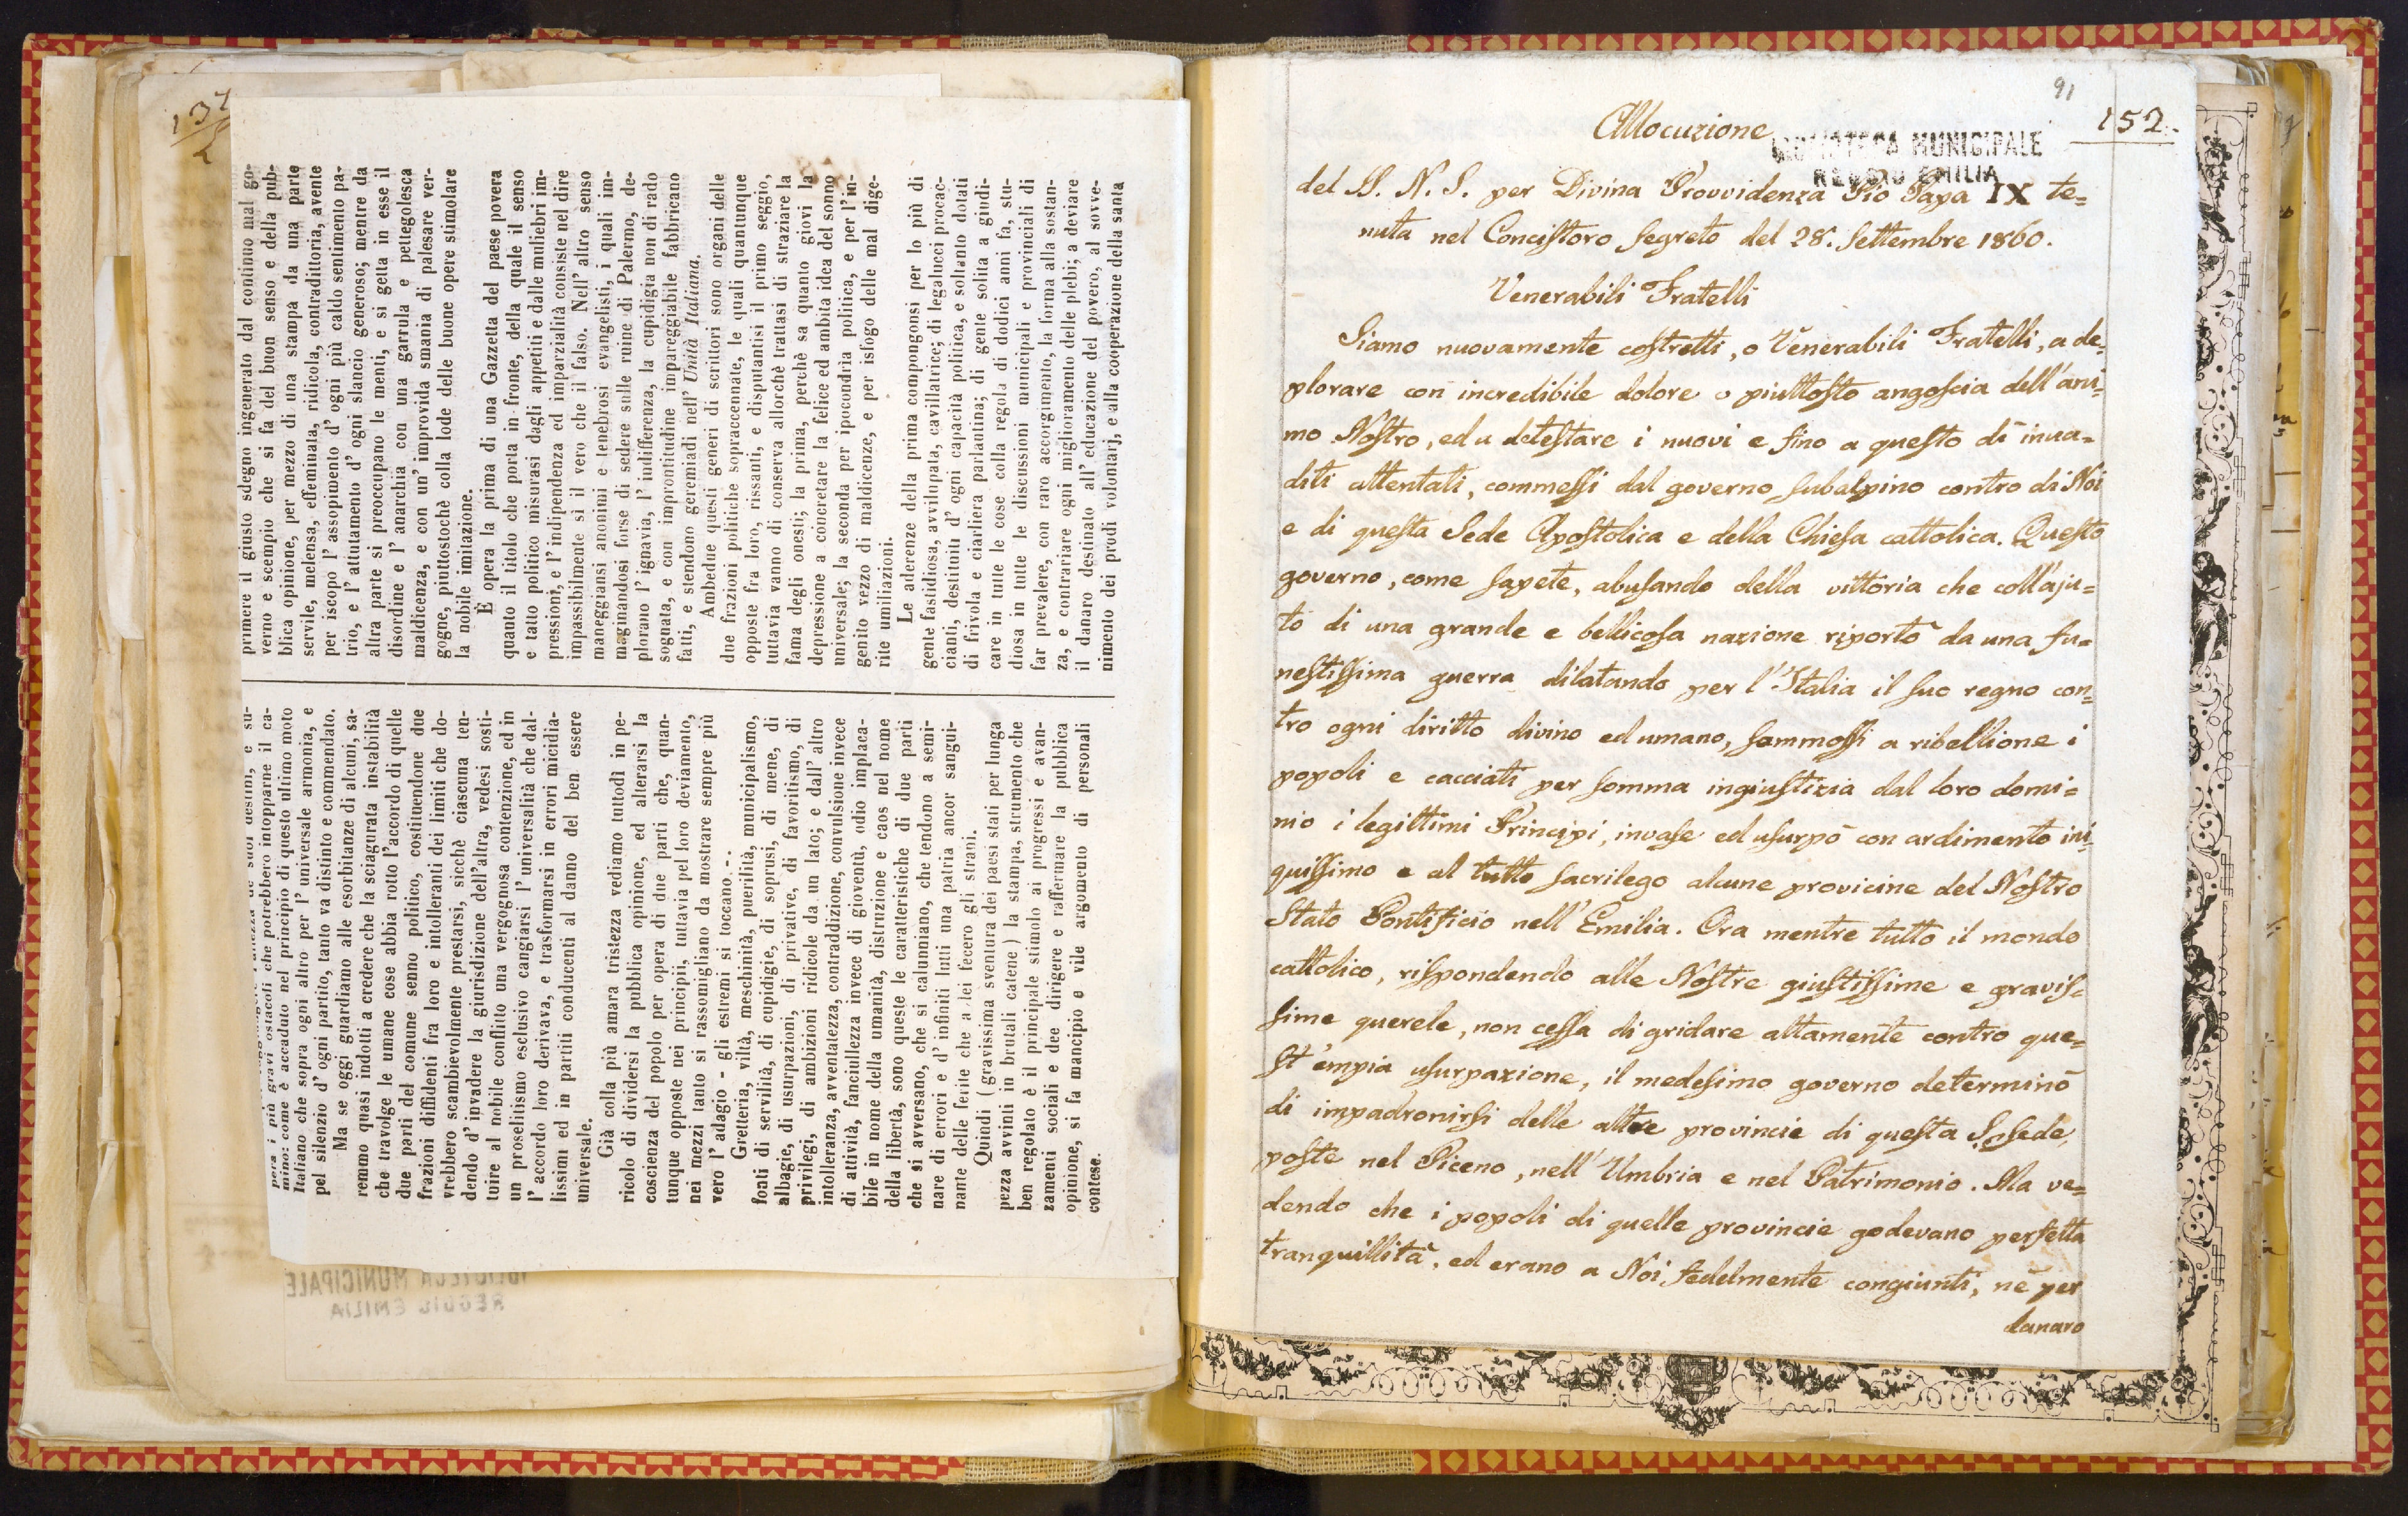 137
2
pera i più gravi ostacoli che potrebbero intopparne il ca-
mino: come è accaduto nel principio di questo ultimo moto
Italiano che sopra ogni altro per l' universale armonia, e
pel silenzio d' ogni partito, tanto va distinto e commendato.
Ma se oggi guardiamo alle esorbitanze di alcuni, sa-
remmo quasi indotti a credere che la sciagurata instabilità
che travolge le umane cose abbia rotto l'accordo di quelle
due parti del comune senno politico, costituendone due
frazioni diffidenti fra loro e intolleranti dei limiti che do-
vrebbero scambievolmente prestarsi, sicchè ciascuna ten-
dendo d' invadere la giurisdizione dell'altra, vedesi sosti-
tuire al nobile conflitto una vergognosa contenzione, ed in
un proselitismo esclusivo cangiarsi l' universalità che dal-
l' accordo loro derivava, e trasformarsi in errori micidia-
lissimi ed in partiti conducenti al danno del ben essere
universale.
Già colla più amara tristezza vediamo tuttodì in pe-
ricolo di dividersi la pubblica opinione, ed alterarsi la
coscienza del popolo per opera di due parti che, quan-
tunque opposte nei principii, tuttavia pel loro deviamento,
nei mezzi tanto si rassomigliano da mostrare sempre più
vero l' adagio - gli estremi si toccano -.
Gretteria, viltà, meschinità, puerilità, municipalismo,
fonti di servilità, di cupidigie, di soprusi, di mene, di
albagie, di usurpazioni, di privative, di favoritismo, di
privilegi, di ambizioni ridicole da un lato; e dall' altro
intolleranza, avventatezza, contraddizione, convulsione invece
di attività, fanciullezza invece di gioventù, odio implaca-
bile in nome della umanità, distruzione e caos nel nome
della libertà, sono queste le caratteristiche di due parti
che si avversano, che si calunniano, che tendono a semi-
nare di errori e d' infiniti lutti una patria ancor sangui-
nante delle ferite che a lei fecero gli strani.
Quindi ( gravissima sventura dei paesi stati per lunga
pezza avvinti in brutali catene ) la stampa, strumento che
ben regolato è il principale stimolo ai progressi e avan-
zamenti sociali e dee dirigere e raffermare la pubblica
opinione, si fa mancipio e vile argomento di personali
contese.
primere il giusto sdegno ingenerato dal continuo mal go-
verno e scempio che si fa del buon senso e della pub-
blica opinione, per mezzo di una stampa da una parte
servile, melensa, effeminata, ridicola, contradittoria, avente
per iscopo l' assopimento d' ogni più caldo sentimento pa-
trio, e l' attutamento d' ogni slancio generoso; mentre da
altra parte si preoccupano le menti, e si getta in esse il
disordine e l' anarchia con una garrula e pettegolesca
maldicenza, e con un' improvida smania di palesare ver-
gogne, piuttostochè colla lode delle buone opere stimolare
la nobile imitazione.
È opera la prima di una Gazzetta del paese povera
quanto il titolo che porta in fronte, della quale il senso
e tatto politico misurasi dagli appetiti e dalle muliebri im-
pressioni, e l' indipendenza ed imparzialità consiste nel dire
impassibilmente sì il vero che il falso. Nell' altro senso
maneggiansi anonimi e tenebrosi evangelisti, i quali im-
maginandosi forse di sedere sulle ruine di Palermo, de-
plorano l' ignavia, l' indifferenza, la cupidigia non di rado
sognata, e con improntitudine impareggiabile fabbricano
fatti, e stendono geremiadi nell' Unità Italiana.
Ambedue questi generi di scrittori sono organi delle
due frazioni politiche sopraccennate, le quali quantunque
opposte fra loro, rissanti, e disputantisi il primo seggio,
tuttavia vanno di conserva allorchè trattasi di straziare la
fama degli onesti; la prima, perchè sa quanto giovi la
depressione a concretare la felice ed ambita idea del sonno
universale; la seconda per ipocondria politica, e per l'in-
genito vezzo di maldicenze, e per isfogo delle mal dige-
rite umiliazioni.
Le aderenze della prima compongonsi per lo più di
gente fastidiosa, avvilupata, cavillatrice; di legalucci procac-
cianti, destituiti d' ogni capacità politica, e soltanto dotati
di frivola e ciarliera parlantina; di gente solita a giudi-
care in tutte le cose colla regola di dodici anni fa, stu-
diosa in tutte le discussioni municipali e provinciali di
far prevalere, con raro accorgimento, la forma alla sostan-
za, e contrariare ogni miglioramento delle plebi; a deviare
il danaro destinato all' educazione del povero, al sovve-
nimento dei prodi volontarj, e alla cooperazione della santa
BIBLIOTECA MUNICIPALE
REGGIO EMILIA
91
152.
Allocuzione
BIBLIOTECA MUNICIPALE
REGGIO EMILIA
del SS. N. S. per Divina Provvidenza Pio Papa IX te=
nuta nel Concistoro segreto del 28. Settembre 1860.
Venerabili Fratelli
Siamo nuovamente costretti, o Venerabili Fratelli, a de=
plorare con incredibile dolore o piuttosto angoscia dell'ani=
mo Nostro, ed a detestare i nuovi e fino a questo dì inau=
diti attentati, commessi dal governo subalpino contro di Noi
e di questa Sede Apostolica e della Chiesa cattolica. Questo
governo, come sapete, abusando della vittoria che coll'aju=
to di una grande e bellicosa nazione riportò da una fu=
nestissima guerra dilatando per l'Italia il suo regno con=
tro ogni diritto divino ed umano, sommossi a ribellione i
popoli e cacciati per somma ingiustizia dal loro domi=
nio i legittimi Principi, invase ed usurpò con ardimento ini=
quissimo e al tutto sacrilego alcune provicine del Nostro
Stato Pontificio nell'Emilia. Ora mentre tutto il mondo
cattolico, rispondendo alle Nostre giustissime e gravis=
sime querele, non cessa di gridare altamente contro que=
st'empia usurpazione, il medesimo governo determinò
di impadronirsi delle altre provincie di questa S. Sede,
poste nel Piceno, nell'Umbria e nel Patrimonio. Ma ve=
dendo che i popoli di quelle provincie godevano perfetta
tranquillità, ed erano a Noi fedelmente congiunti, nè per
danaro